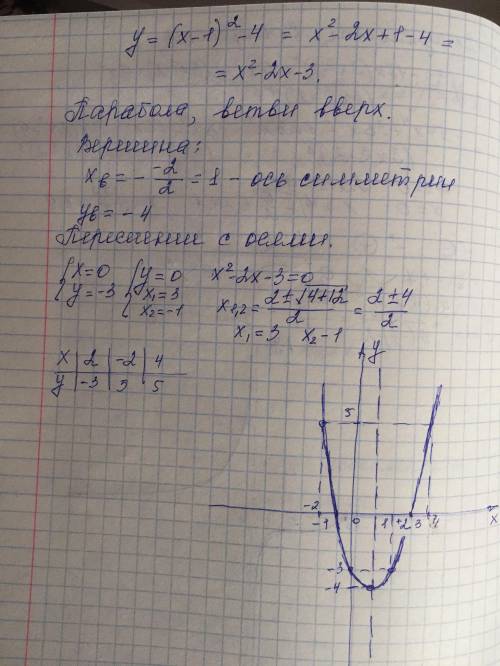 y = (x-1)² - 4 = x² - 2x + 1 - 4 =
= x² - 2x - 3.
Парабола, ветви вверх.
Вершина:
xв = - -2/2 = 1 - ось симметрии
yв = - 4
Пересечении с осями.
{x=0 {y=0 x² - 2x - 3 = 0
{y=-3 {x₁=3 x₁,₂ = 2±√4+12/2 = 2±4/2
x₂=-1 x₁ = 3 x₂ -1
x | 2 | -2 | 4
y | -3 | 5 | 5
y
5
-2 -1 0 1 2 3 4 x
-3
-4